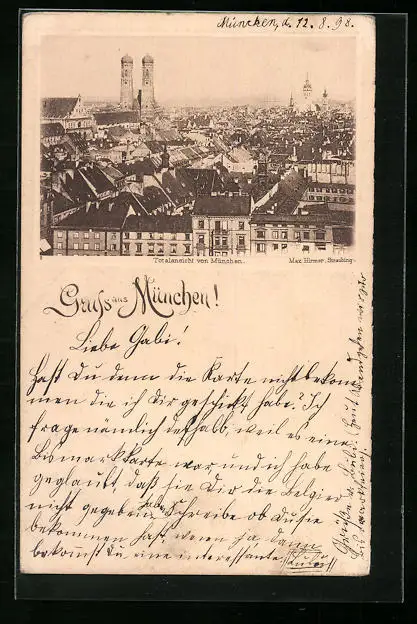 München, d. 12. 8. 98.
Totalansicht von München.
Max Hirmer, Straubing.
Gruss aus München!
Liebe Gabi!
Hast Du denn die Karte nicht bekom
men die ich dir geschickt habe? Ich
frage nämlich deshalb, weil es eine
Bismarkkarte war und ich habe
geglaubt, daß sie Dir die Belgier
nicht gegeben haben. Schreibe ob du sie
bekommen hast, wenn ja, dann
bekomst du eine interessante